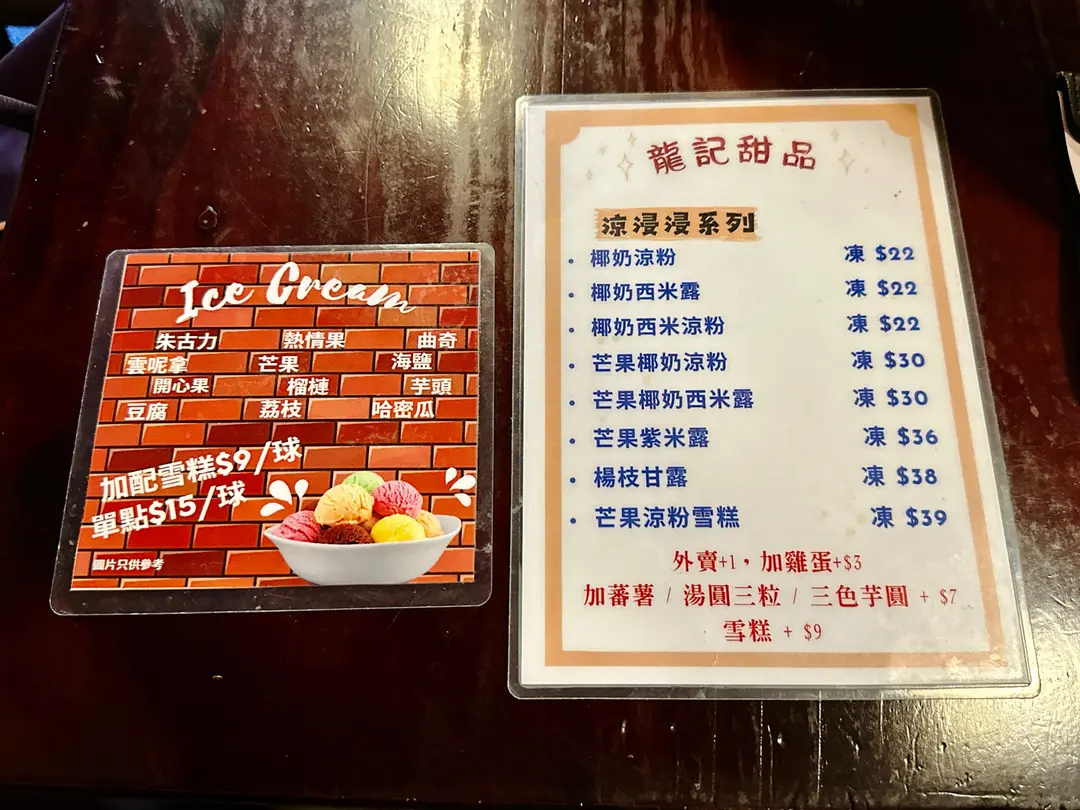 Ice Cream
朱古力 熱情果 曲奇
雲呢拿 芒果 海鹽
開心果 榴槤 芋頭
豆腐 荔枝 哈密瓜
加配雪糕$9/球
單點$15/球
圖片只供參考
龍記甜品
涼浸浸系列
• 椰奶涼粉 凍 $22
• 椰奶西米露 凍 $22
• 椰奶西米涼粉 凍 $22
• 芒果椰奶涼粉 凍 $30
• 芒果椰奶西米露 凍 $30
• 芒果紫米露 凍 $36
• 楊枝甘露 凍 $38
• 芒果涼粉雪糕 凍 $39
外賣+1，加雞蛋+$3
加蕃薯 / 湯圓三粒 / 三色芋圓 + $7
雪糕 + $9